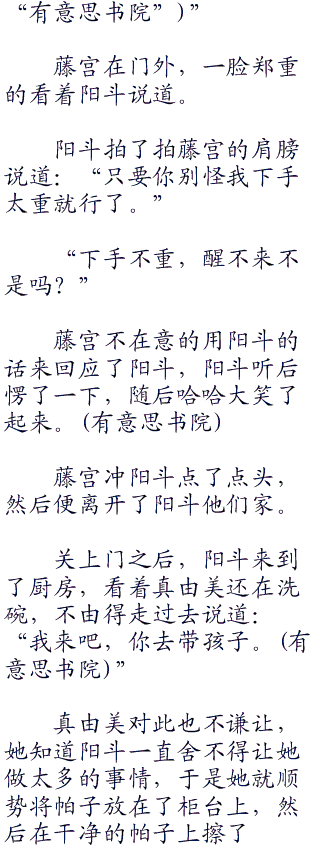 “有意思书院”)”
藤宫在门外，一脸郑重
的看着阳斗说道。
阳斗拍了拍藤宫的肩膀
说道：“只要你别怪我下手
太重就行了。”
“下手不重，醒不来不
是吗？”
藤宫不在意的用阳斗的
话来回应了阳斗，阳斗听后
愣了一下，随后哈哈大笑了
起来。(有意思书院)
藤宫冲阳斗点了点头，
然后便离开了阳斗他们家。
关上门之后，阳斗来到
了厨房，看着真由美还在洗
碗，不由得走过去说道：
“我来吧，你去带孩子。(有
意思书院)”
真由美对此也不谦让，
她知道阳斗一直舍不得让她
做太多的事情，于是她就顺
势将帕子放在了柜台上，然
后在干净的帕子上擦了